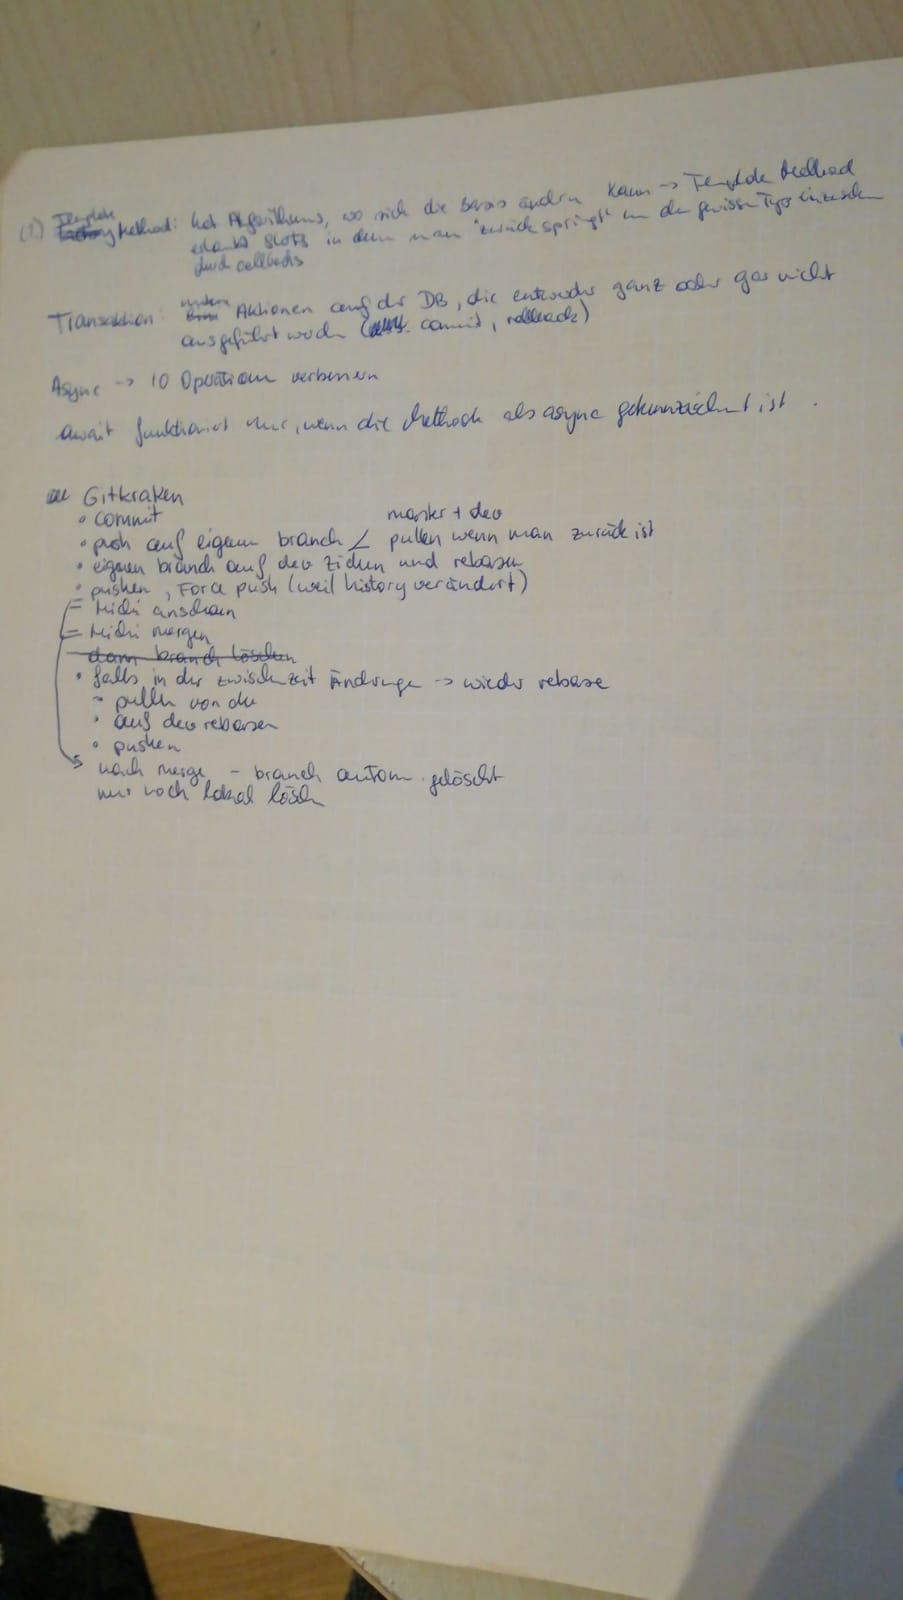 (1) Template
Factory Method: hat Algorithmus, wo sich die Basis ändern kann -> Template Method
erlaubt Slots in dem man "zurück springt" um den gewissen Typ einzusetzen
durch callbacks
Transaktion: mehrere Aktionen auf der DB, die entweder ganz oder gar nicht
ausgeführt werden ( commit, rollback)
Async -> IO Operationen verbessern
await funktioniert nur, wenn die Methode als async gekennzeichnet ist.
Gitkraken
• commit
master + dev
• push auf eigenen branch ∠ pullen wenn man zurück ist
• eigenen branch auf dev ziehen und rebasen
• pushen, Force push (weil history verändert)
= Michi anschauen
= Michi mergen
- dann branch löschen
• falls in der zwischenzeit Änderungen -> wieder rebase
- pullen von dev
• auf dev rebasen
• pushen
nach merge - branch autom. gelöscht
nur noch lokal löschen